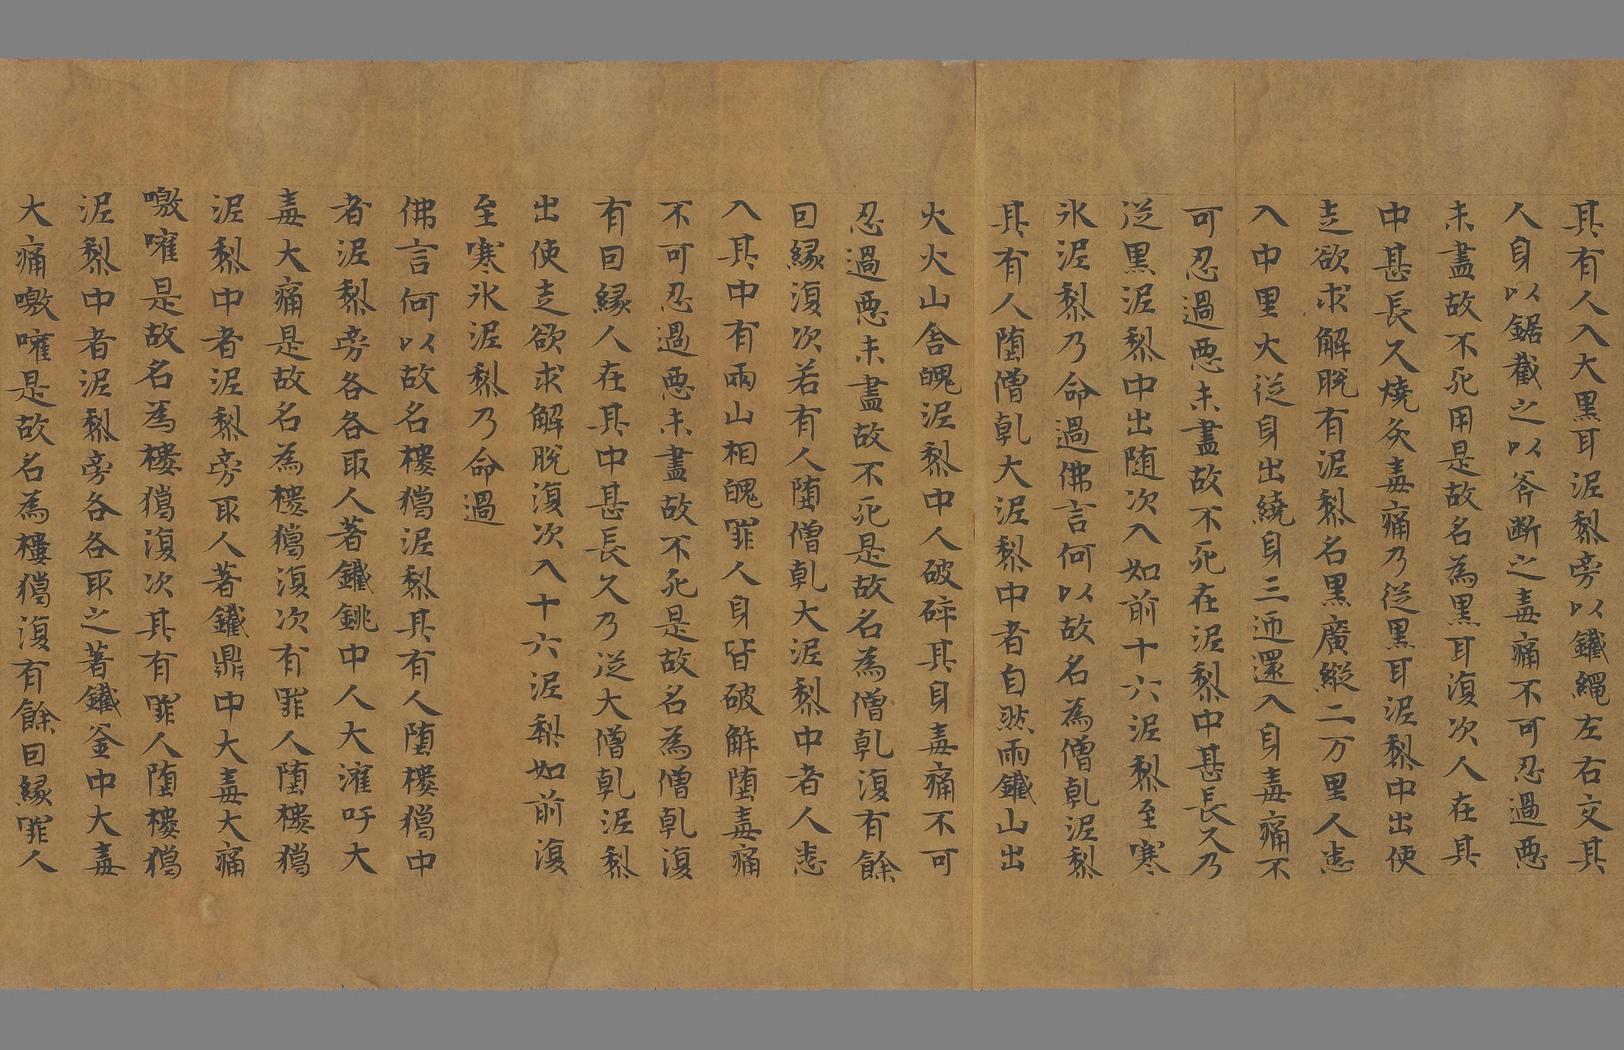 其有人入大黒耳泥梨旁以鐵繩左右交其
人身以鋸截之以斧斷之毒痛不可忍過惡
未盡故不死用是故名為黒耳復次人在其
中甚長久燒炙毒痛乃從黒耳泥梨中出便
走欲求解脫有泥梨名黒廣縱二万里人悉
入中里火從身出繞身三迊還入身毒痛不
可忍過惡未盡故不死在泥梨中甚長久乃
從黒泥梨中出随次入如前十六泥梨至寒
氷泥梨乃命過佛言何以故名為僧乹泥梨
其有人堕僧乹大泥梨中者自然雨鐵山出
火火山舎磈泥梨中人破碎其身毒痛不可
忍過惡未盡故不死是故名為僧乹復有餘
因緣復次若有人堕僧乹大泥梨中者人悉
入其中有兩山相磈罪人身皆破解堕毒痛
不可忍過惡未盡故不死是故名為僧乹復
有因緣人在其中甚長久乃從大僧乹泥梨
出使走欲求解脫復次入十六泥梨如前復
至寒氷泥梨乃命過
佛言何以故名樓獦泥梨其有人堕樓獦中
者泥梨旁各各取人著鐵銚中人大嚾吁大
毒大痛是故名為樓獦復次有罪人堕樓獦
泥梨中者泥梨旁取人著鐵鼎中大毒大痛
噭嚾是故名為樓獦復次其有罪人堕樓獦
泥梨中者泥梨旁各各取之著鐵釜中大毒
大痛噭嚾是故名為樓獦復有餘因緣罪人